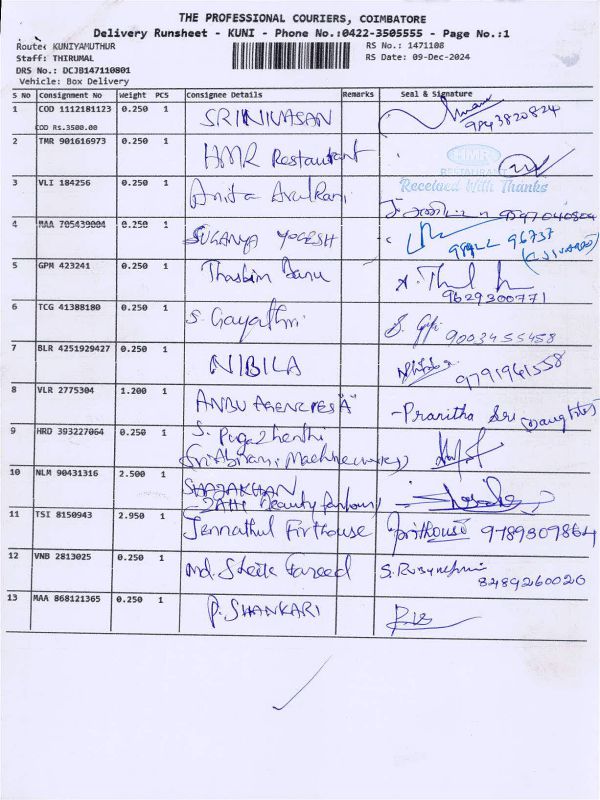 THE PROFESSIONAL COURIERS, COIMBATORE
Delivery Runsheet - KUNI - Phone No.:0422-3505555 - Page No.:1
Route: KUNIYAMUTHUR RS No.: 1471108
Staff: THIRUMAL RS Date: 09-Dec-2024
DRS No.: DCJB147110801
Vehicle: Box Delivery
S No Consignment No Weight PCS Consignee Details Remarks Seal & Signature
1 COD 1112181123 0.250 1 SRINIVASAN
9843820824
COD Rs.3500.00
2 TMR 901616973 0.250 1 HMR Restaurant HMR
RESTAURANT
Received With Thanks
3 VLI 184256 0.250 1 Anita
4 MAA 705439004 0.250 1 SUGANYA YOGESH
96737
5 GPM 423241 0.250 1 Thasbim Banu
9629300771
6 TCG 41388180 0.250 1 S. Gayathri 9003455458
7 BLR 4251929427 0.250 1 NIBILA 9791961558
8 VLR 2775304 1.200 1 ANBU AGENCIES "A" - Pranitha Sri (Daughter)
9 HRD 393227064 0.250 1 S. Pugazhenthi
Sri Abirami Machine works
10 NLM 90431316 2.500 1 SHAJAKHAN
Beauty parlour
11 TSI 8150943 2.950 1 Jennathul Firthouse Firthouse 9789309864
12 VNB 2813025 0.250 1 Md. Sheik Fareed
8489260020
13 MAA 868121365 0.250 1 P. SHANKARI